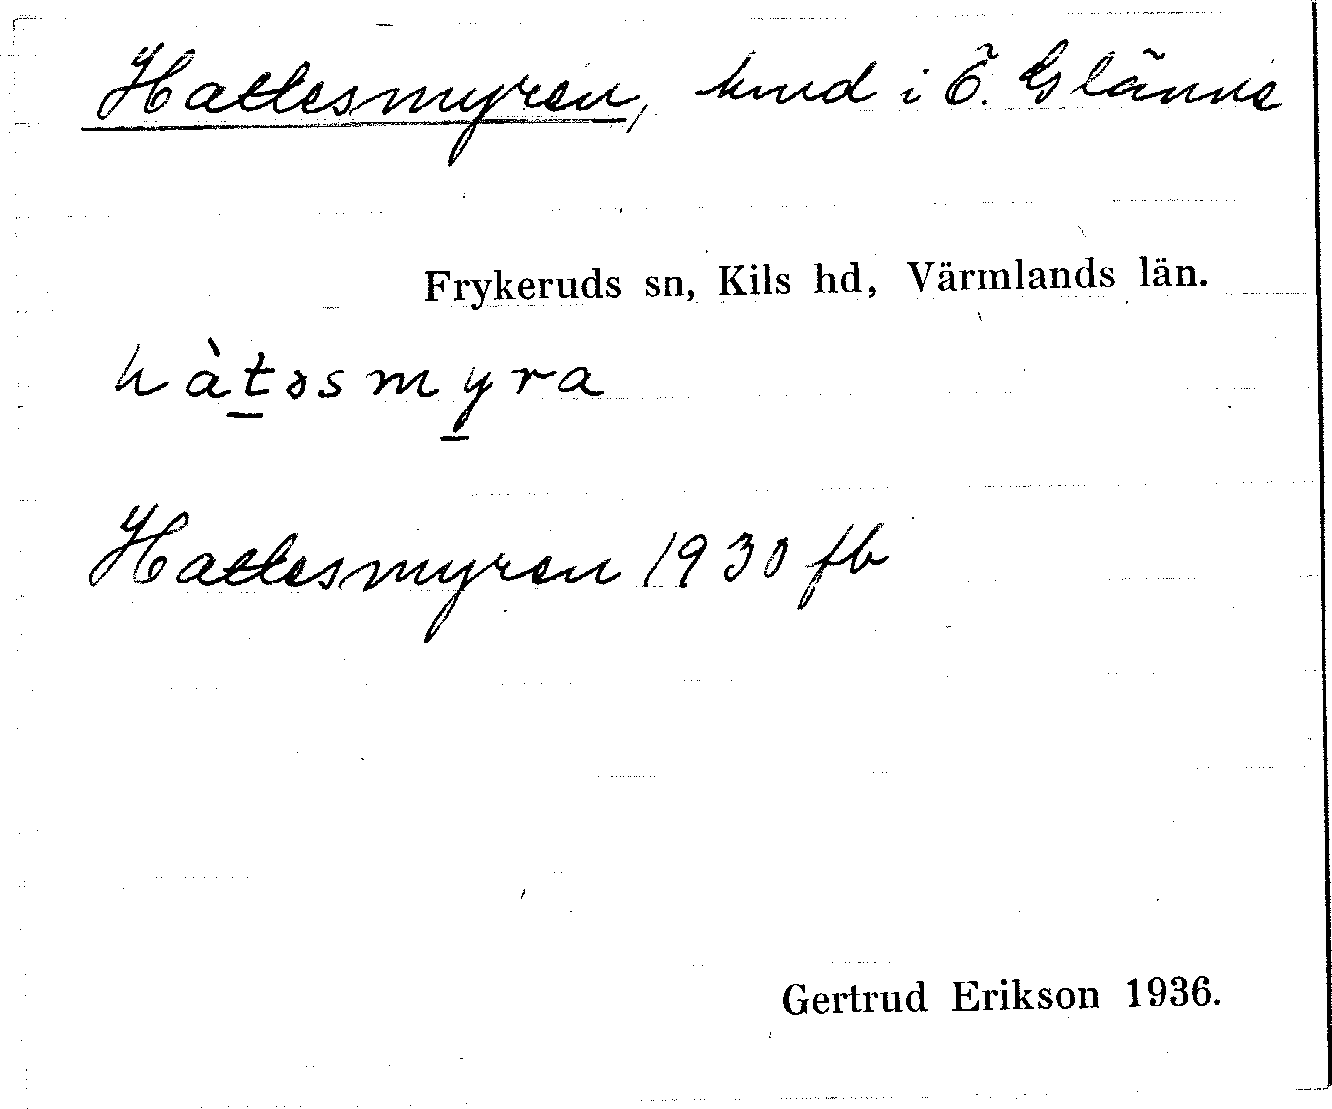 Hattesmyren, hmd i Ö. Glänne
Frykeruds sn, Kils hd, Värmlands län.
hàtəsmyra
Hattesmyren 1930 fb
Gertrud Erikson 1936.